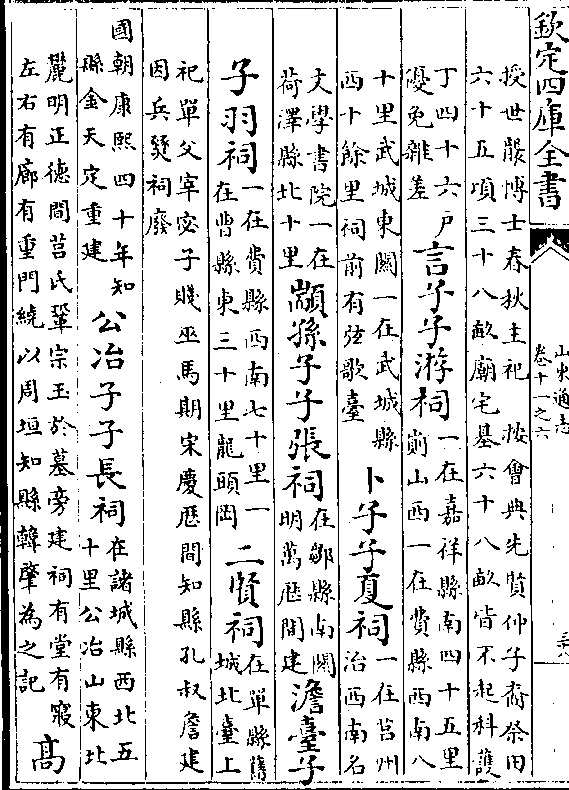 欽定四庫全書
山東通志
卷十一之六
授世襲博士春秋主祀 按會典先賢仲子裔祭田
六十五頃三十八畝廟宅墓六十八畝皆不起科護
丁四十六户
優免雜差
言子子游祠
一在嘉祥縣南四十五里
山西一在費縣西南八
十里武城東關一在武城縣
西十餘里祠前有弦歌臺
卜子子夏祠
一在莒州
治西南名
文學書院一在
荷澤縣北十里
顓孫子子張祠
在鄒縣南關
明萬歴間建
澹臺子
子羽祠
一在費縣西南七十里一
在曹縣東三十里龍頭岡
二賢祠
在單縣舊
城北臺上
祀單父宰宓子賤巫馬期宋慶歴間知縣孔叔詹建
因兵燹祠廢
國朝康熙四十年知
縣金天定重建
公冶子子長祠
在諸城縣西北五
十里公冶山東北
麓明正德間莒氏鞏宗玉於墓旁建祠有堂有寢
左右有廊有重門繞以周垣知縣韓肇為之記
高